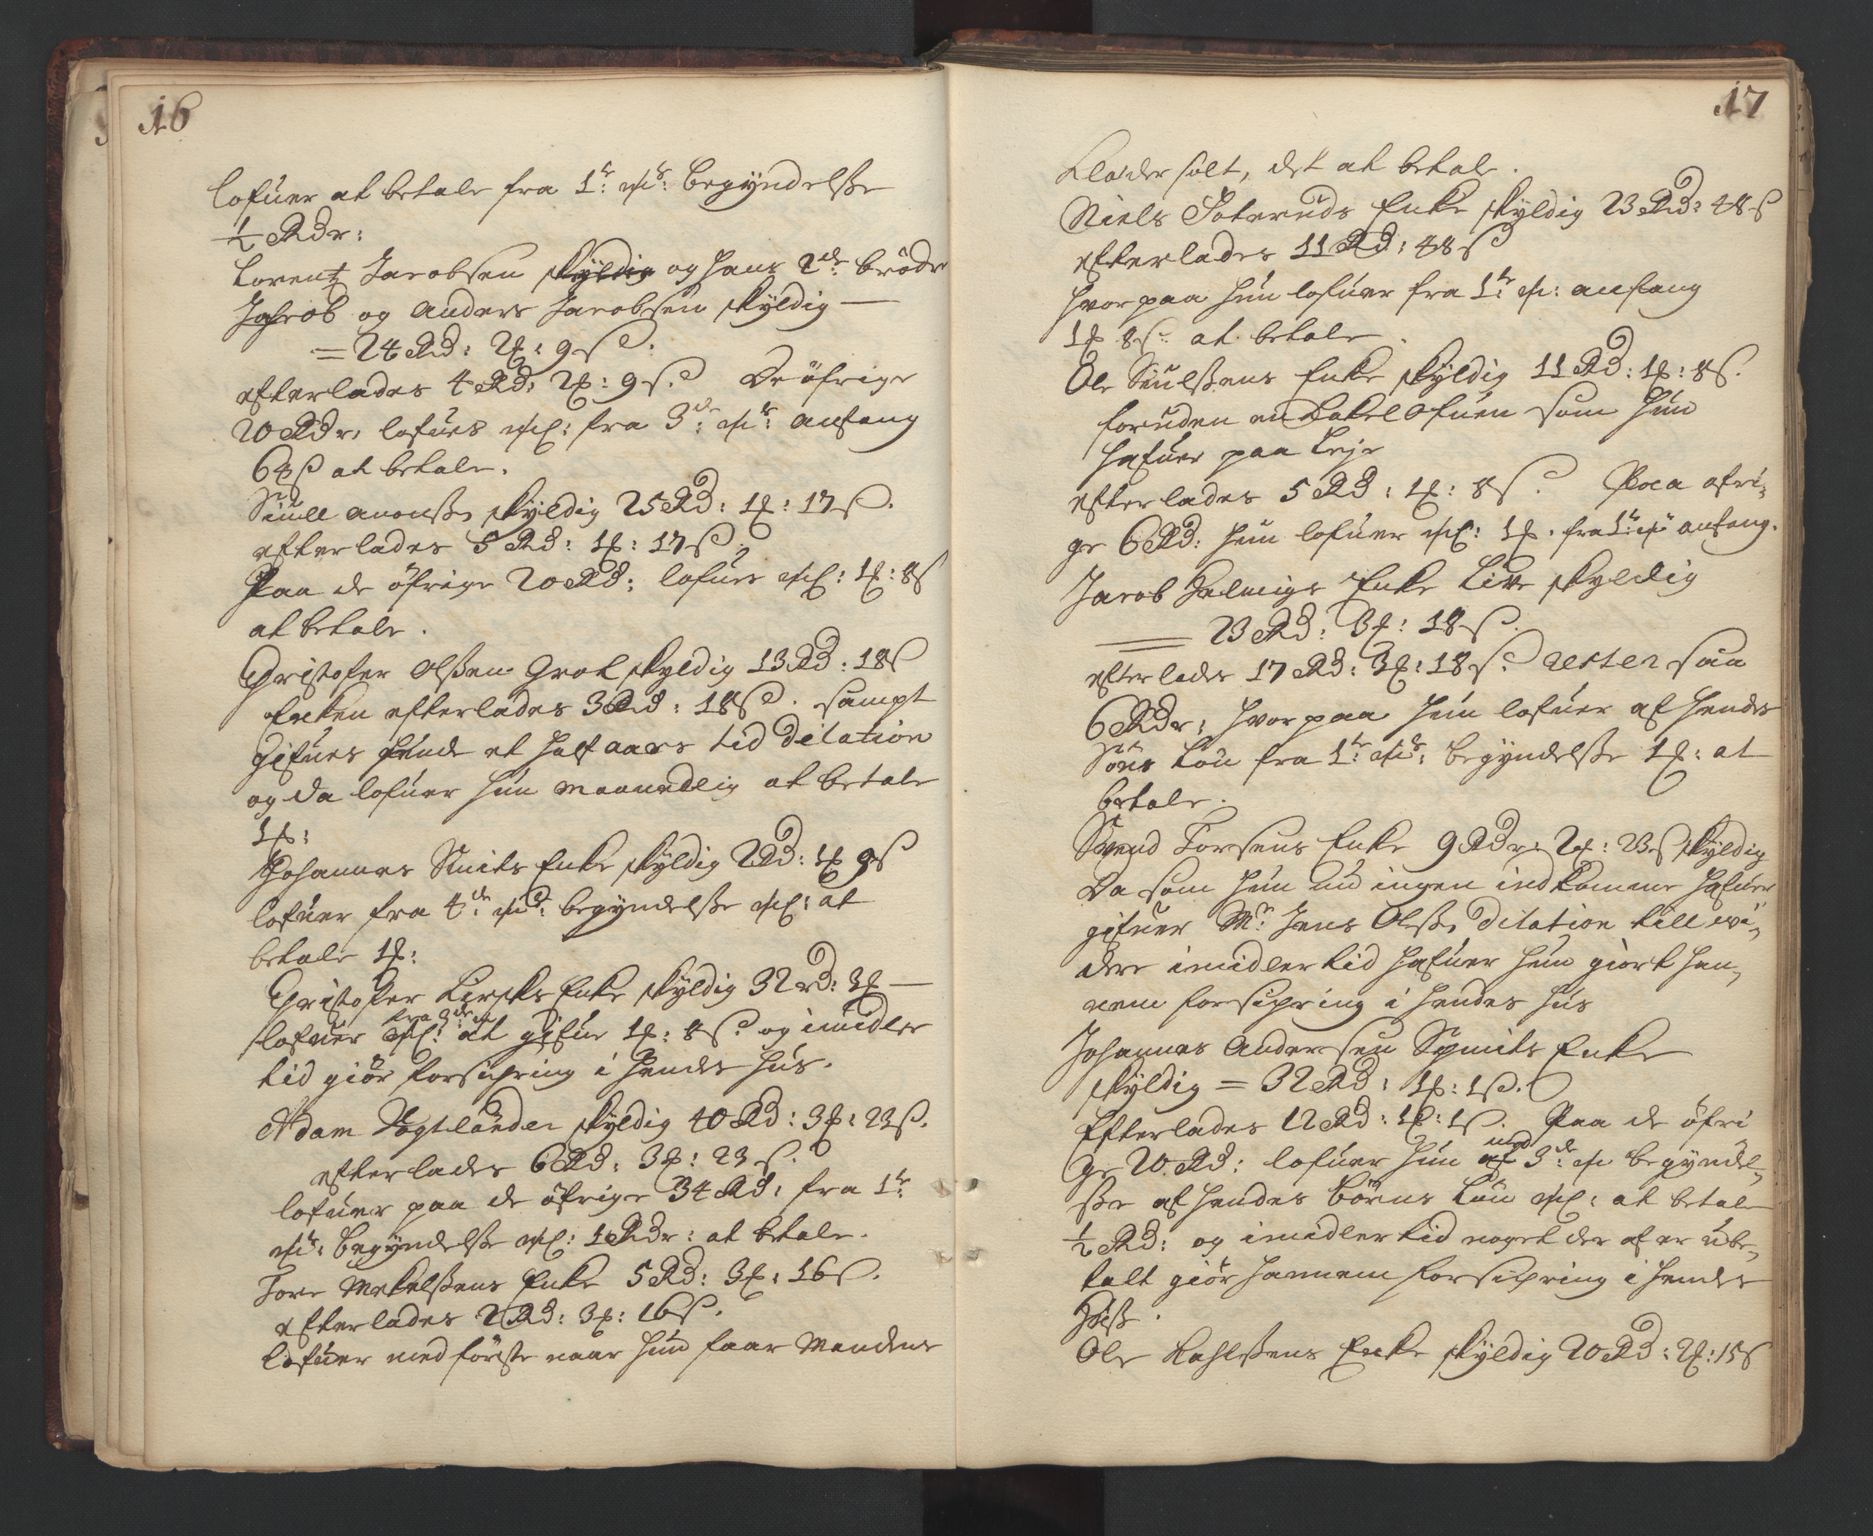 16
lofuer at betale fra 1te md: begÿndelsse
½ Rdr:
Lorentz Jacobsen skÿldig og hans 2de brödre
Jachob og Anders Jacobsen skÿldig —
= 24 Rd: 2 : 9 s.
efterlades 4 Rd: 2 : 9 s. De öfrige
20 Rdr, lofues fra 3de anfang
64 s at betale.
Siuell skÿldig 25 Rd: 1 : 17 s.
efterlades 5 Rd: 1 : 17 s.
Paa de öfrige 20 Rd: lofuer : 1 : 8 s
at betale.
Christofer Olssen Grok skÿldig 13 Rd: 18 s
Encken efterlades 3 Rd: 18 s. sampt
gifues hende et half aars tid Dilation
og da lofuer hun maanedlig at betale
1 :
Johannes Smits Enke skÿldig 2 Rd: 1 9 s
lofuer fra 4de begÿndelsse at
betale 1 :
Christofer Enke skÿldig 32 rd: 3 —
lofuer fra 3de at gifue 1 : 8 s. og imidler
tid giör forsichring i hendes hus.
Adam Vogtländer skÿldig 40 Rd: 3 : 23 s.
efterlades 6 Rd: 3 : 23 s.
lofuer paa de öfrige 34 Rd: fra 1te
begÿndelsse 1 Rdr: at betale.
Tore Mekelssens Enke 5 Rd: 3 : 16 s.
efterlades 2 Rd: 3 : 16 s.
Lofuer med förste naar hun faar Mandens
17
Klæder solt, det at betale.
Niels Soteruds Enke skÿldig 23 Rd: 48 s
efterlades 11 Rd: 48 s
hvorpaa hun lofuer fra 1te anfang
1 8 s. at betale.
Ole Siulssens Enke skÿldig 11 Rd: 1 : 8 s.
foruden en Kakelofuen som hun
hafuer paa Leje
efterlades 5 Rd: 1 : 8 s. Paa öfri-
ge 6 Rd: hun lofuer : 1 . fra 1te anfang.
Jacob Helmigs Enke Live skÿldig
23 Rd: 3 : 18 s.
efterlades 17 Rd: 3 : 18 s. resten saa
6 Rdr, hvorpaa hun lofuer af hendes
Söns Lön fra 1te begÿndelsse 1 : at
betale.
Svend Torsens Enke 9 Rdr 2 : 23 s skÿldig
Da som hun nu ingen indkomme hafuer
gifuer Mr. Jens Olss: Dilation till vi-
dere imidlertid hafuer hun giort han-
nem forsichring i hendes hus
Johannes Andersen Smits Enke
skÿldig = 32 Rd: 1 : 1 s.
Efterlades 12 Rd: 1 : 1 s. Paa de öfri
ge 20 Rd: lofuer hun af med 3de begÿndel-
sse af hendes börns Lön : at betale
½ Rd: og imidlertid noget der af er ube-
talt giör hannem forsichring i hendes
huss.
Ole Enke skÿldig 20 Rd: 2 : 15 s